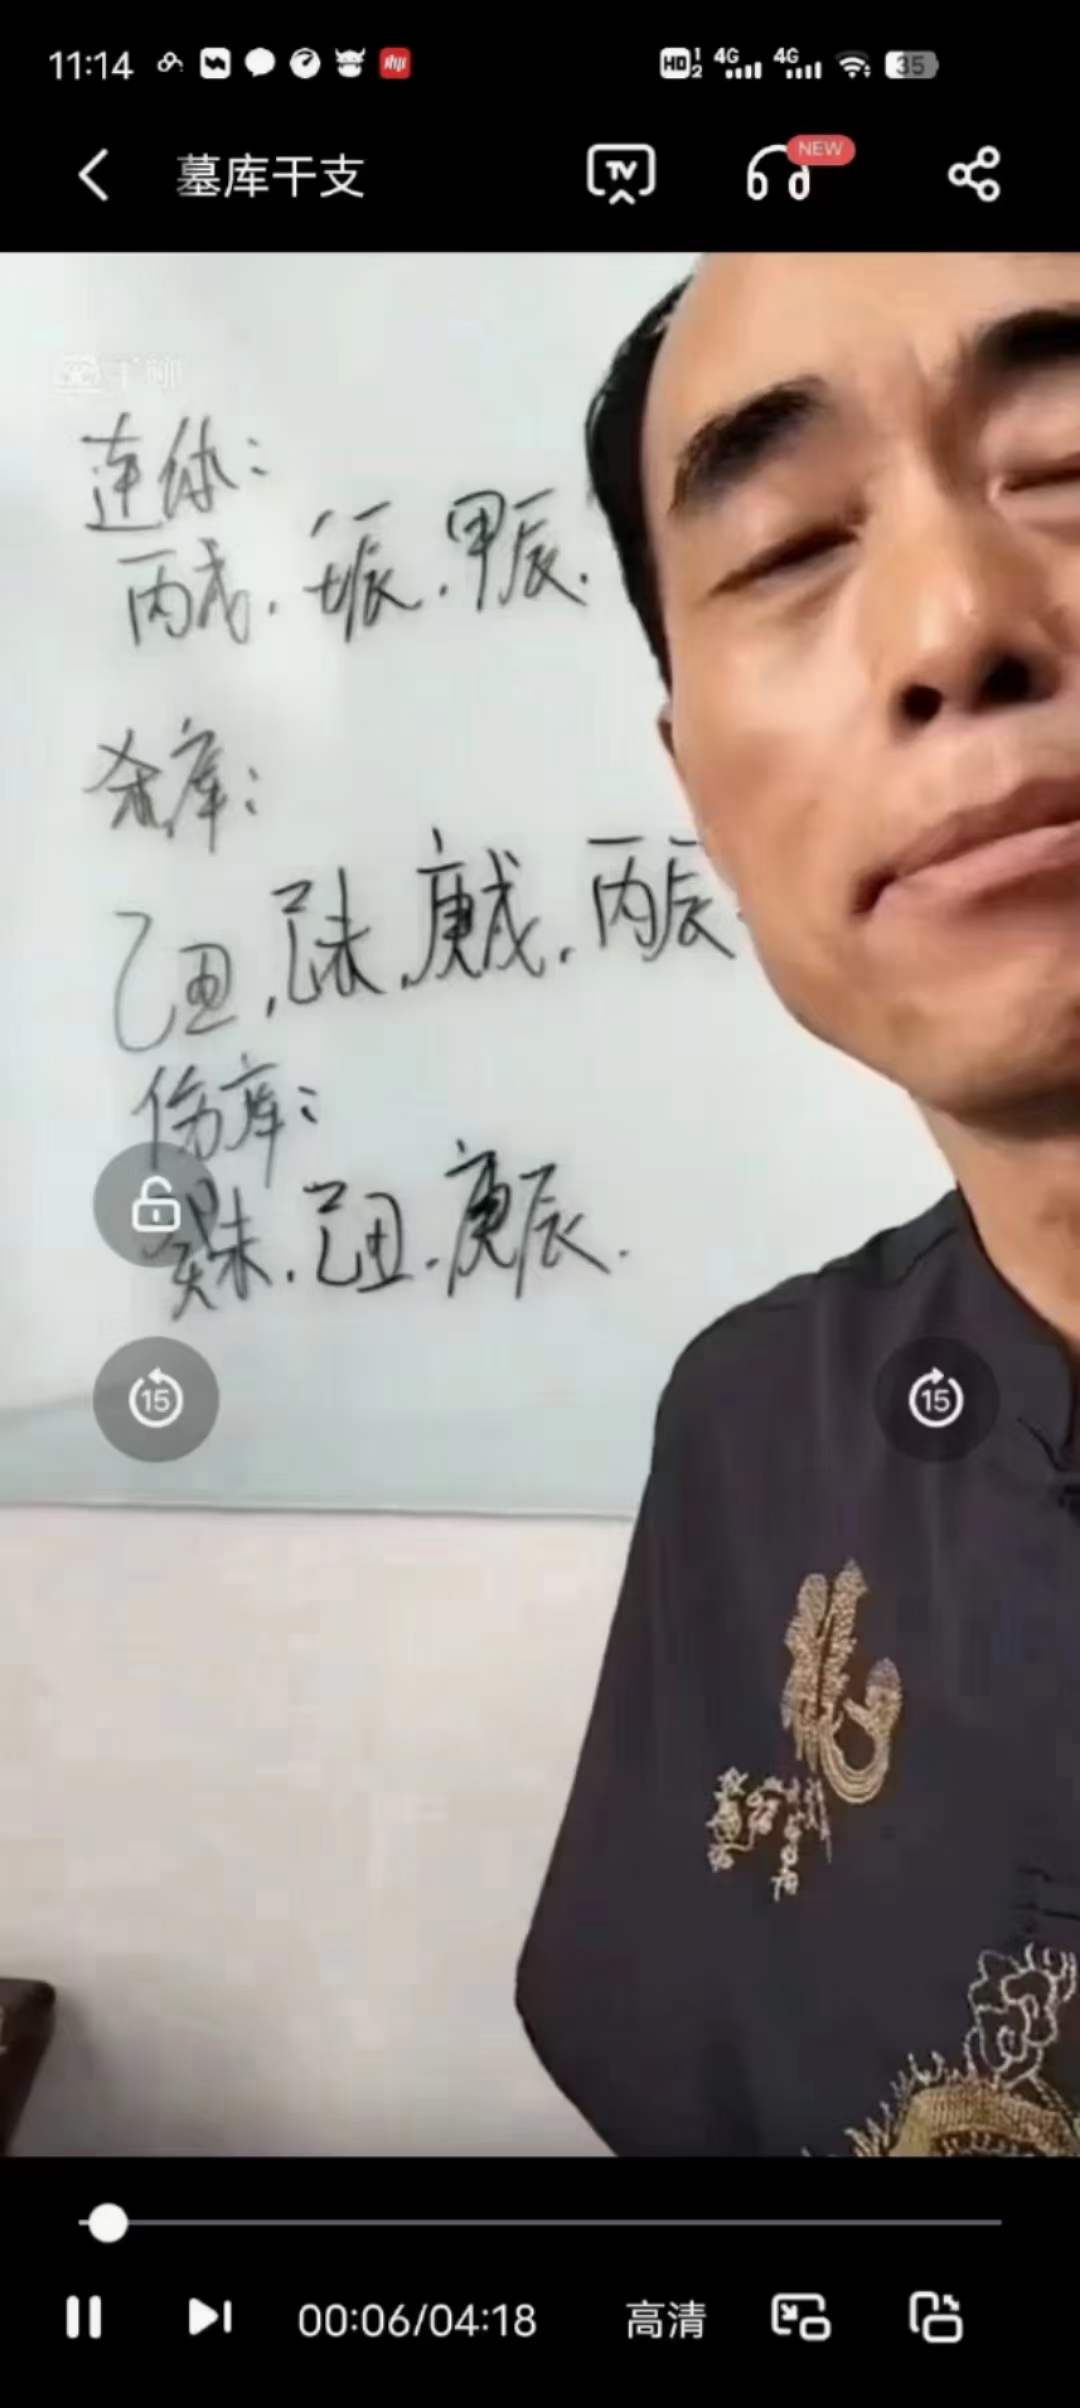 11:14 HD 1 2 4G 4G 35
墓库干支 TV NEW
连体:
丙戌. 壬辰. 甲辰.
杀库:
乙丑, 己未, 庚戌, 丙辰
伤库:
癸未. 己丑. 庚辰.
15 15
00:06/04:18 高清